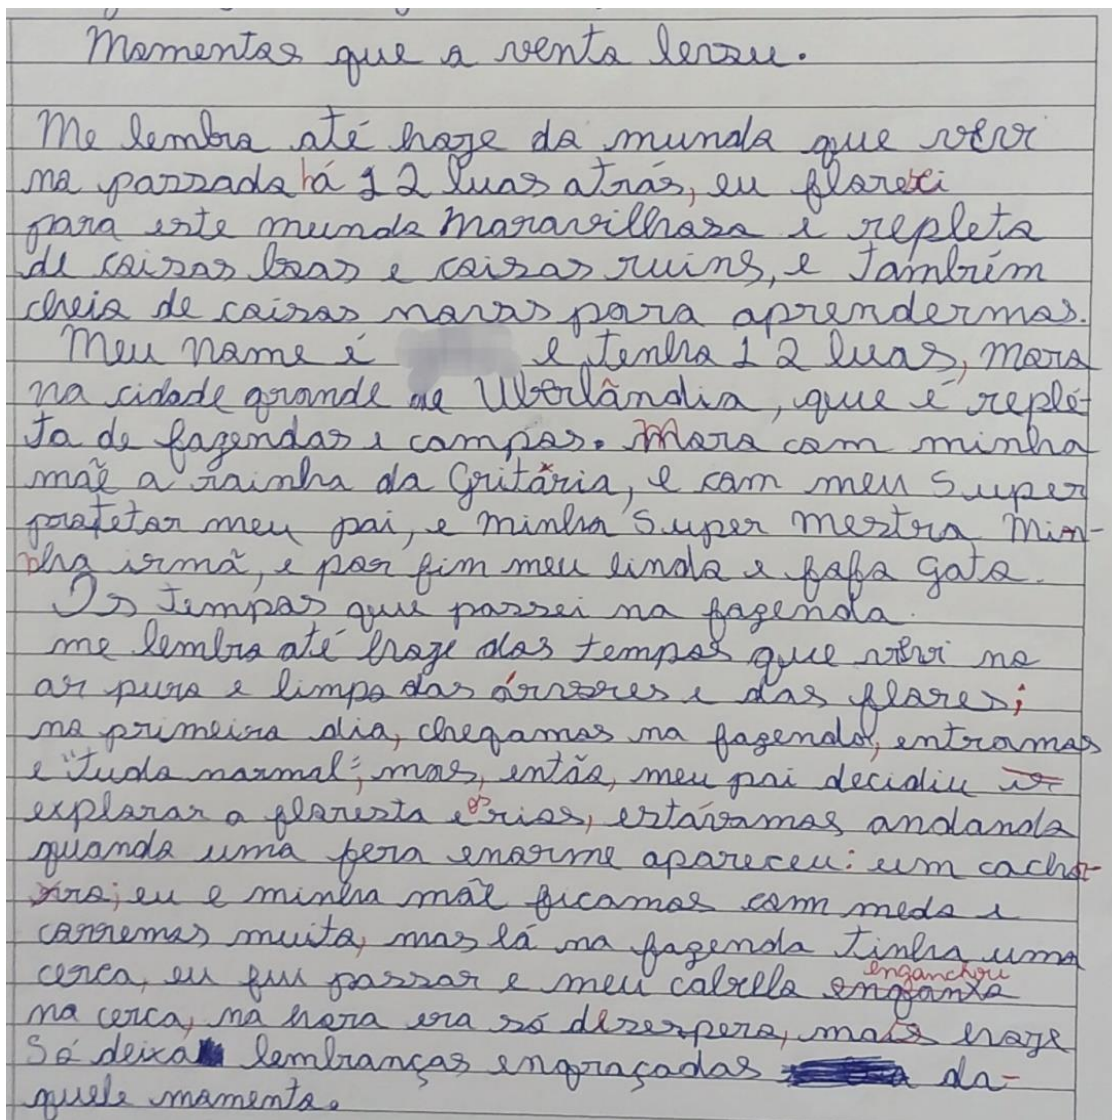 Momentos que o vento levou.
Me lembro até hoje do mundo que vivi
no passado há 12 luas atrás, eu floresci
para este mundo maravilhoso e repleto
de coisas boas e coisas ruins, e também
cheio de coisas novas para aprendermos.
Meu nome é e tenho 12 luas, moro
na cidade grande de Uberlândia, que é reple-
ta de fazendas e campos. Moro com minha
mãe a rainha da Gritária, e com meu Super
protetor meu pai, e minha Super mestra Min-
nha irmã, e por fim meu lindo e fofo gato.
Os tempos que passei na fazenda.
me lembro até hoje dos tempos que vivi no
ar puro e limpo das árvores e das flores;
no primeiro dia, chegamos na fazenda, entramos
e "tudo normal"; mas, então, meu pai decidiu ir
explorar a floresta e os rios, estávamos andando
quando uma fera enorme apareceu: um cachor-
rro; eu e minha mãe ficamos com medo e
corremos muito, mas lá na fazenda tinha uma
cerca, eu fui passar e meu cabelo enganxo
enganchou
na cerca, na hora era só desespero, mais hoje
Só deixa lembranças engraçadas da-
quele momento.